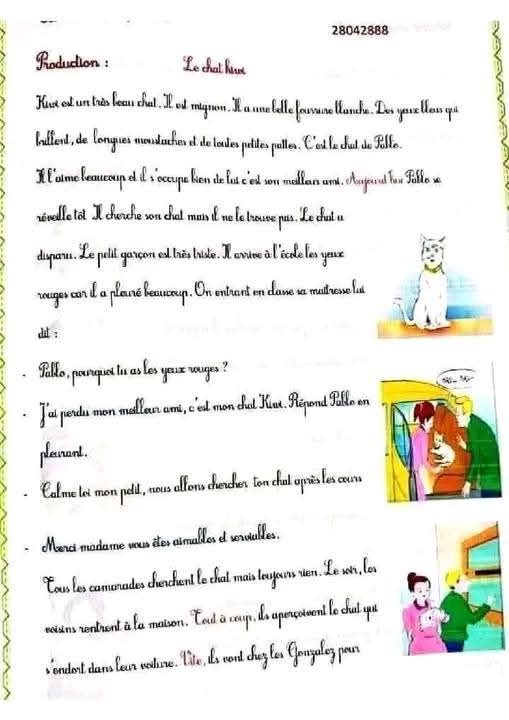 28042888
Production :
Le chat kiwi
Kiwi est un très beau chat. Il est mignon. Il a une belle fourrure blanche. Des yeux bleus qui
brillent, de longues moustaches et de toutes petites pattes. C'est le chat de Pablo.
Il l'aime beaucoup et il s'occupe bien de lui c'est son meilleur ami. Aujourd'hui Pablo se
réveille tôt Il cherche son chat mais il ne le trouve pas. Le chat a
disparu. Le petit garçon est très triste. Il arrive à l'école les yeux
rouges car il a pleuré beaucoup. En entrant en classe sa maîtresse lui
dit :
- Pablo, pourquoi tu as les yeux rouges ?
- J'ai perdu mon meilleur ami, c'est mon chat Kiwi. Répond Pablo en
pleurant.
- Calme toi mon petit, nous allons chercher ton chat après les cours
- Merci madame vous êtes aimables et serviables.
Tous les camarades cherchent le chat mais toujours rien. Le soir, les
voisins rentrent à la maison. Tout à coup, ils aperçoivent le chat qui
s'endort dans leur voiture. Vite, ils vont chez les Gonzalez pour